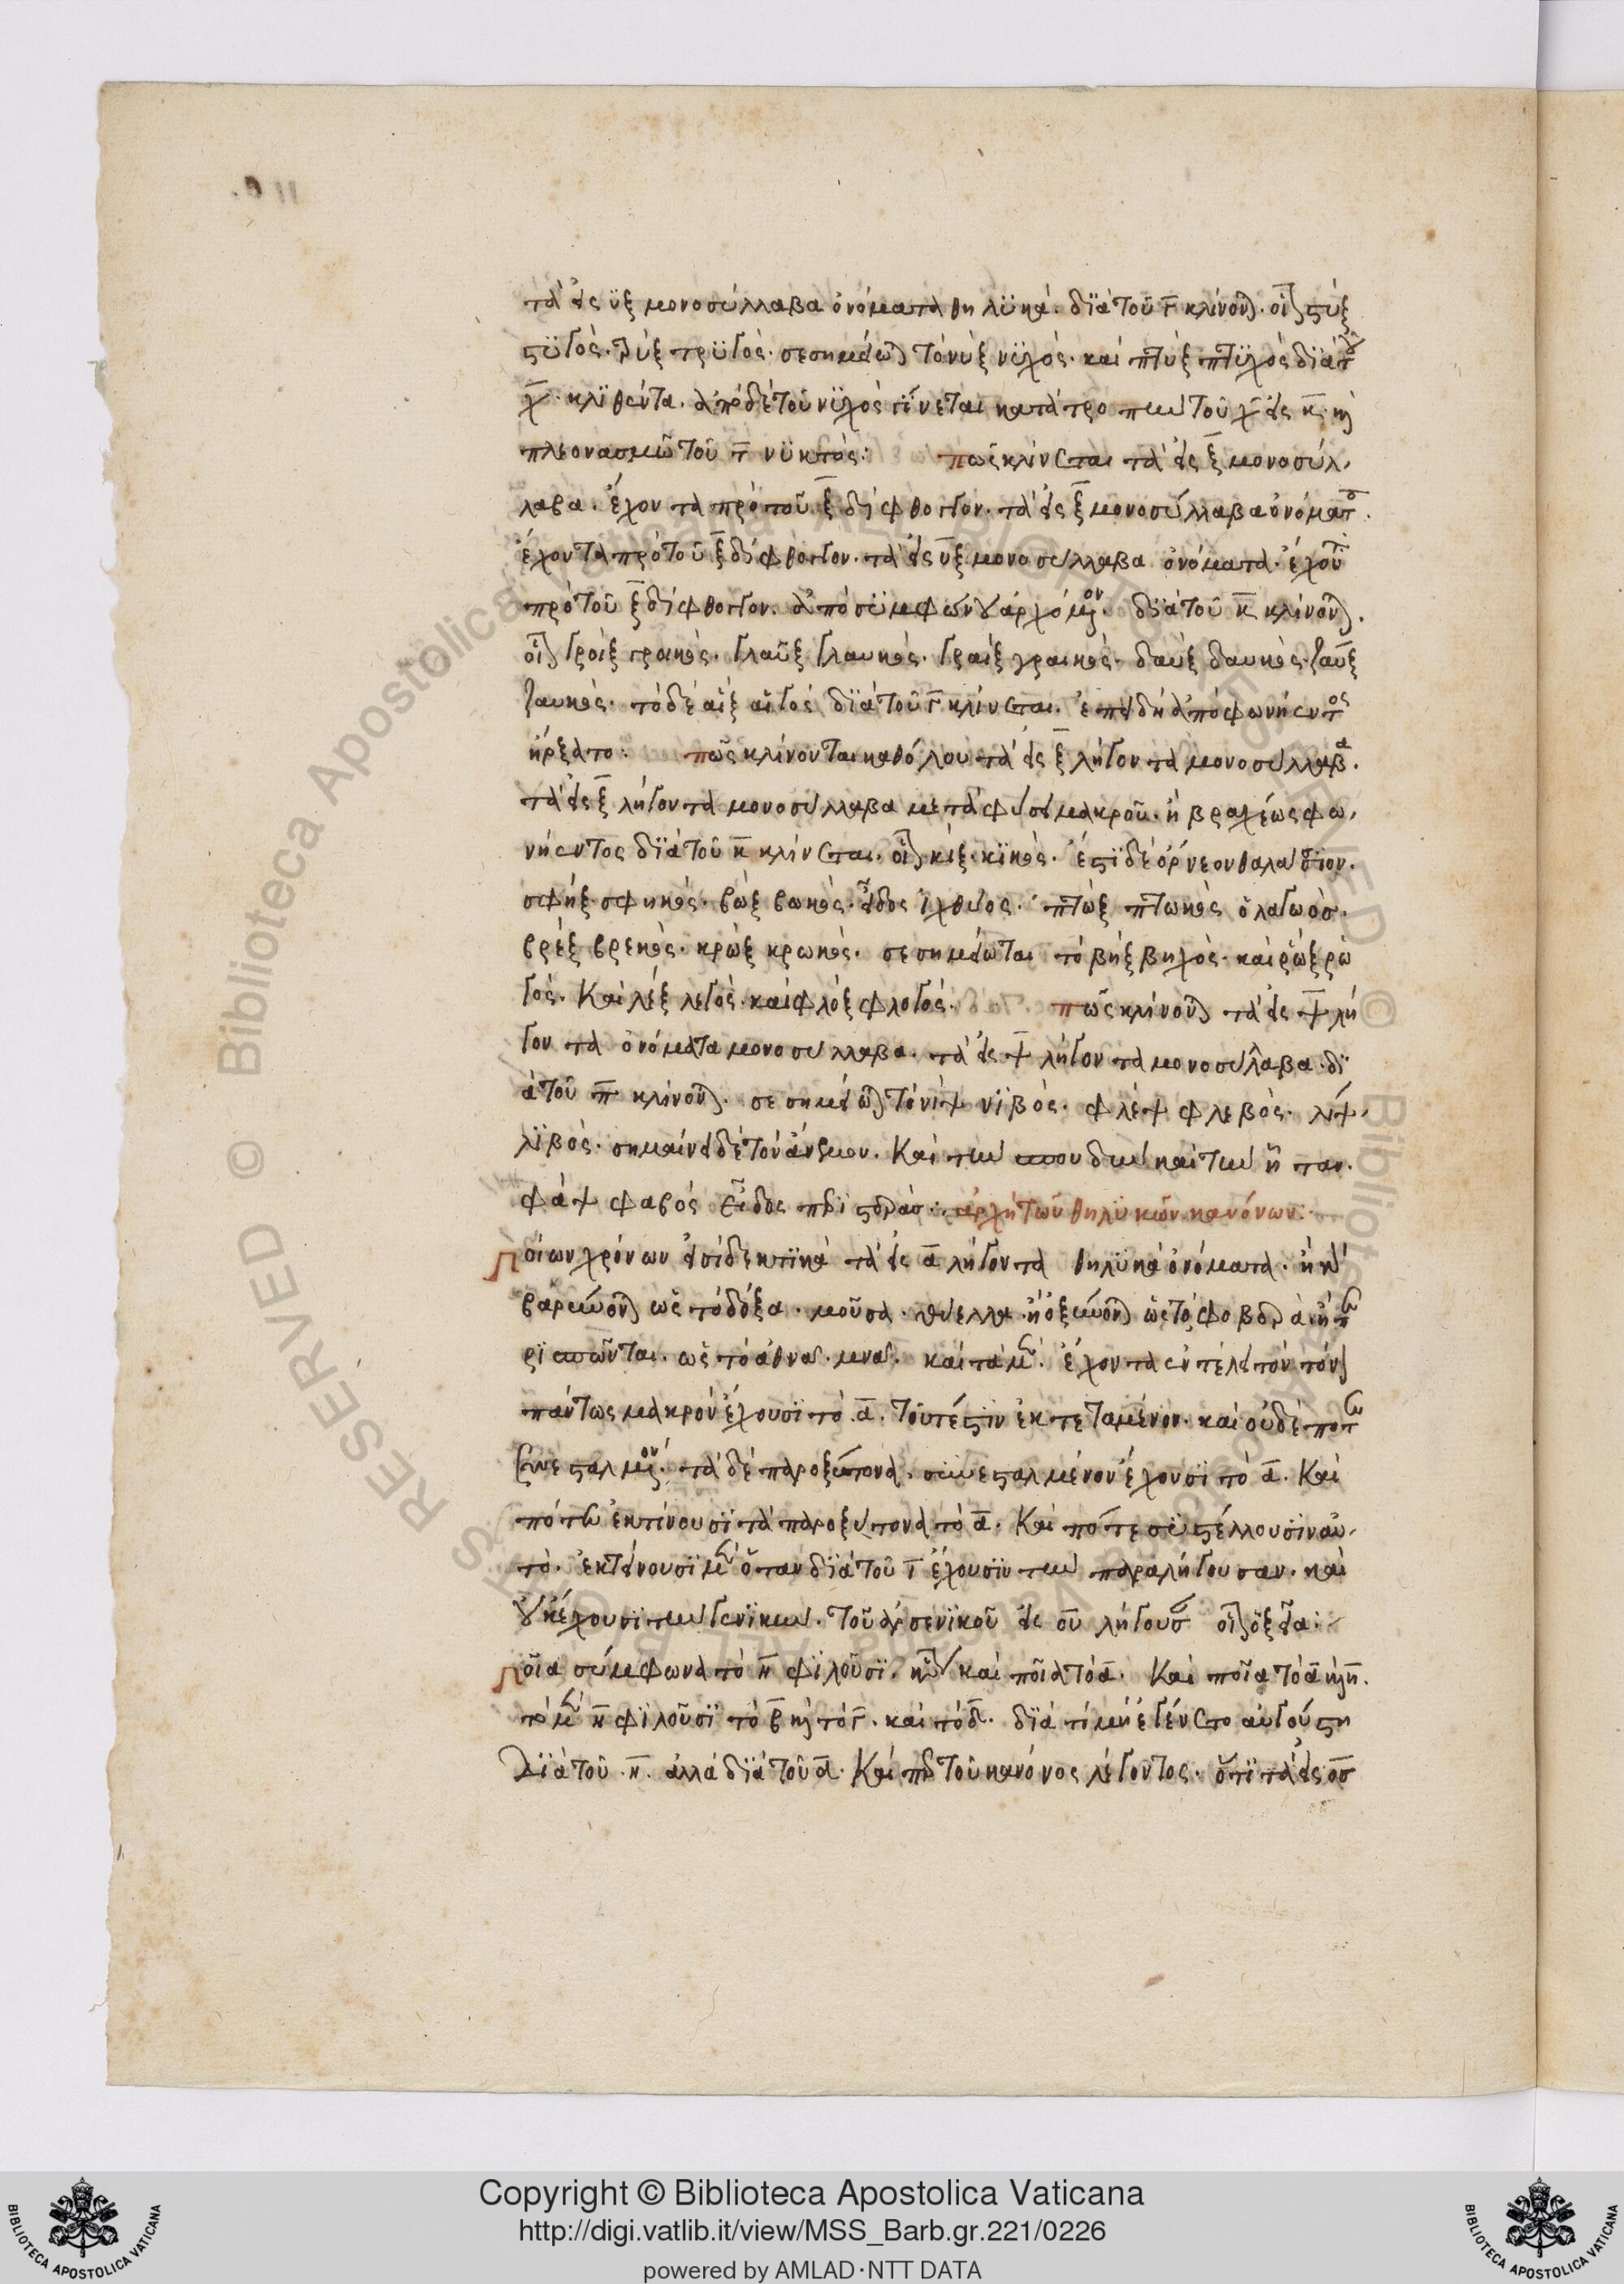 τὰ εἰς ϋξ μονοσύλλαβα ὀνόματα θηλϋκὰ. δϊὰ τοῦ γ κλίνονται. οἷον στὺξ
στϋγὸς. τρὺξ τρϋγὸς. σεσημείωται τὸ νὺξ νϋχὸς. καὶ πτὺξ πτϋχὸς δϊὰ τοῦ
χ κλϊθέντα. ἀπὸ δὲ τοῦ νϋχὸς γίνεται κατὰ τροπὴν τοῦ χ εἰς κ καὶ
πλεονασμῶ τοῦ τ νϋκτὸς: πῶς κλίνεται τὰ εἰς ξ μονοσύλ
λαβα. ἔχοντα πρὸ τοῦ ξ δίφθογγον. τὰ εἰς ξ μονοσύλλαβα ὀνόματα.
ἔχοντα πρὸ τοῦ ξ δίφθογγον. τὰ εἰς ϋξ μονοσύλλαβα ὀνόματα. ἔχοντα
πρὸ τοῦ ξ δίφθογγον. ἀπὸ συμφώνου ἀρχόμενον. δϊὰ τοῦ κ κλίνονται.
οἷον γραὶξ γραικὸς. γλαῦξ γλαυκὸς. γραὶξ γραικὸς. δαὺξ δαυκὸς. ζαῦξ
ζαυκὸς. τὸ δὲ αἶξ αἰγὸς δϊὰ τοῦ γ κλίνεται. ἐπειδὴ ἀπὸ φωνήεντος
ἤρξατο: πῶς κλίνονται καθόλου τὰ εἰς ξ λήγοντα μονοσύλλαβα.
τὰ εἰς ξ λήγοντα μονοσύλλαβα μετὰ φύσει μακροῦ. ἢ βραχέως φω
νήεντος δϊὰ τοῦ κ κλίνεται. οἷον κὶξ κϊκὸς. ἔστϊ δὲ ὄρνεον θαλάσσϊον.
σφὴξ σφηκὸς. βὼξ βωκὸς. εἶδος ἰχθύος. πτὼξ πτωκὸς ὁ λαγωός.
βρὲξ βρεκὸς. κρὼξ κρωκὸς. σεσημείωται τὸ βὴξ βηχὸς. καὶ ῥὼξ ῥω
γὸς. Καὶ λὲξ λεγὸς. καὶ φλὸξ φλογὸς. πῶς κλίνονται τὰ εἰς ψ λή
γοντα ὀνόματα μονοσύλλαβα. τὰ εἰς ψ λήγοντα μονοσύλλαβα. δϊ
ὰ τοῦ π κλίνονται. σεσημείωται τὸ νὶψ νϊβὸς. φλὲψ φλεβὸς. λὶψ
λϊβὸς. σημαίνει δὲ τὸν ἄνεμον. Καὶ τὴν σπουδὴν καὶ τὴν
φὰψ φαβὸς εἶδος περϊστερᾶς: ἀρχὴ τῶν θηλυκῶν κανόνων:
Ποίων χρόνων εἰσὶ δεκτϊκὰ τὰ εἰς α λήγοντα θηλϋκὰ ὀνόματα. ἢ καὶ
βαρύνονται ὡς τὸ δόξα. μοῦσα. θύελλα. ἢ ὀξύνονται ὡς τὸ φοβερὰ. ἢ πε
ρϊσπῶνται. ὡς τὸ ἀθηνᾶ. μνᾶ. καὶ τὰ μὲν. ἔχοντα ἐν τέλει τὸν τόνον
πάντως μακρὸν ἔχουσϊ τὸ α. τουτέστϊν ἐκτεταμένον. καὶ οὐδέποτε
συνεσταλμένον. τὰ δὲ παροξύτονα. συνεσταλμένον ἔχουσϊ τὸ α. Καὶ
πότε ἐκτείνουσϊ τὰ παροξύτονα τὸ α. Καὶ πότε συστέλλουσϊν αὐ
τὸ. ἐκτείνουσϊ μὲν ὅταν δϊὰ τοῦ ι ἔχουσϊν τὴν παραλήγουσαν. καὶ
οὐκ ἔχουσϊ τὴν γενϊκὴν. τοῦ ἀρσενϊκοῦ εἰς ου λήγουσαν οἷον ὀξεῖα:
Ποῖα σύμφωνα τὸ η φϊλοῦσϊ. καὶ ποῖα τὸ α. Καὶ ποῖα τὸ α καὶ η.
τὸ μὲν η φϊλοῦσϊ τὸ β καὶ τὸ γ. καὶ τὸ δ. δϊὰ τί μὴ ἐγένετο αὐγούστη
δϊὰ τοῦ η. ἀλλὰ δϊὰ τοῦ α. Καὶ περ τοῦ κανόνος λέγοντος. ὅτϊ τὰ εἰς ος
Copyright © Biblioteca Apostolica Vaticana
http://digi.vatlib.it/view/MSS_Barb.gr.221/0226
powered by AMLAD·NTT DATA